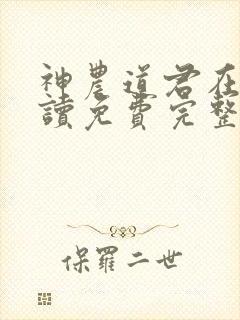 神農道君在
讀免費完整
保羅二世